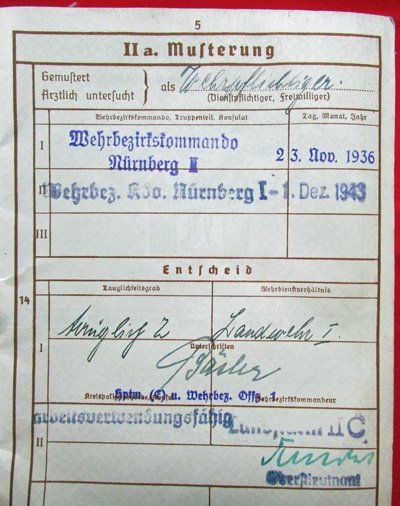 5
IIa. Musterung
Gemustert
Ärztlich untersucht } als Wehrpflichtiger.
(Dienstpflichtiger, Freiwilliger)
Wehrbezirkskommando, Truppenteil, Konsulat Tag, Monat, Jahr
I Wehrbezirkskommando
Nürnberg II 23. Nov. 1936
II Wehrbez. Kdo. Nürnberg I - 1. Dez. 1943
III
Entscheid
14
Tauglichkeitsgrad Wehrdienstverhältnis
I tauglich 2 Landwehr I.
Unterschriften
Hptm. (E) u. Wehrbez. Offz. 1
Wehrbezirkskommandeur
arbeitsverwendungsfähig II C
II
Oberstleutnant